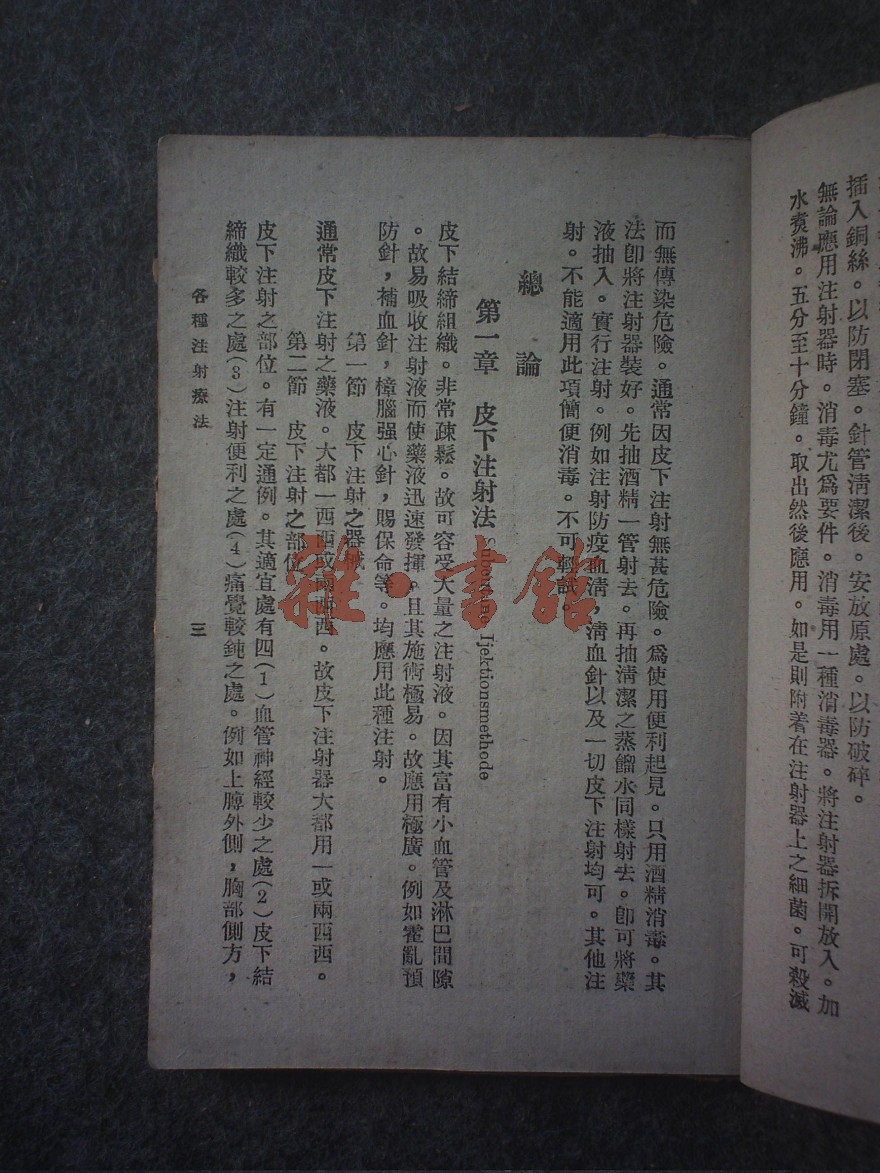 插入銅絲。以防閉塞。針管清潔後。安放原處。以防破碎。
無論應用注射器時。消毒尤爲要件。消毒用一種消毒器。將注射器拆開放入。加
水煑沸。五分至十分鐘。取出然後應用。如是則附着在注射器上之細菌。可殺滅
而無傳染危險。通常因皮下注射無甚危險。爲使用便利起見。只用酒精消毒。其
法卽將注射器裝好。先抽酒精一管射去。再抽清潔之蒸餾水同樣射去。卽可將藥
液抽入。實行注射。例如注射防疫血清，清血針以及一切皮下注射均可。其他注
射。不能適用此項簡便消毒。不可輕試。
總論
第一章 皮下注射法 Subcutane Ijektionsmethode
皮下結締組織。非常疎鬆。故可容受大量之注射液。因其富有小血管及淋巴間隙
。故易吸收注射液而使藥液迅速發揮。且其施術極易。故應用極廣。例如霍亂預
防針，補血針，樟腦强心針，賜保命等。均應用此種注射。
第一節 皮下注射之器械
通常皮下注射之藥液。大都一西西或兩西西。故皮下注射器大都用一或兩西西。
第二節 皮下注射之部位
皮下注射之部位。有一定通例。其適宜處有四(1)血管神經較少之處(2)皮下結
締織較多之處(3)注射便利之處(4)痛覺較鈍之處。例如上膊外側，胸部側方，
各種注射療法
三
雜·書館